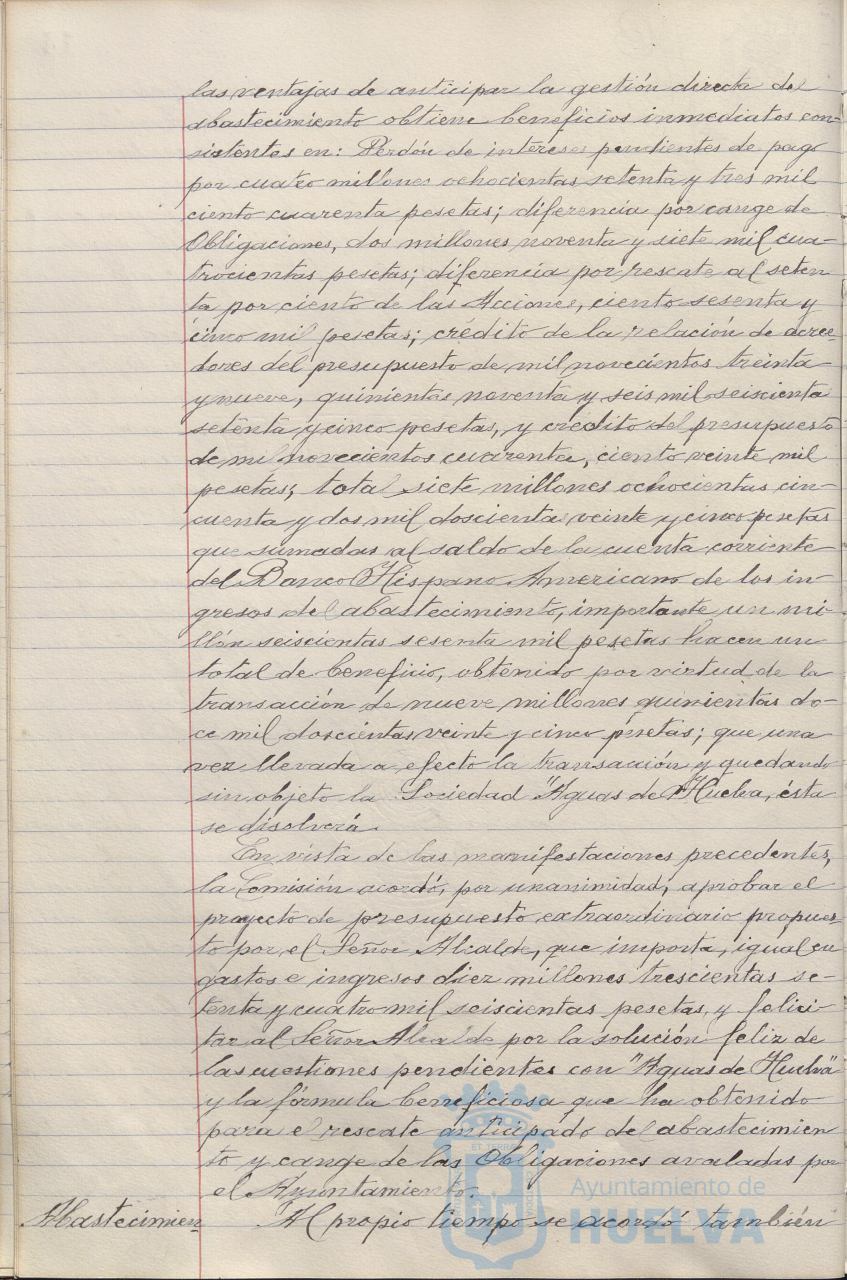 las ventajas de anticipar la gestión directa del
abastecimiento obtiene beneficios inmediatos con-
sistentes en: Perdón de intereses pendientes de pago
por cuatro millones ochocientas setenta y tres mil
ciento cuarenta pesetas; diferencia por cange de
Obligaciones, dos millones noventa y siete mil cua-
trocientas pesetas; diferencia por rescate al seten
ta por ciento de las Acciones, ciento sesenta y
cinco mil pesetas; crédito de la relación de acree-
dores del presupuesto de mil novecientos treinta
y nueve, quinientas noventa y seis mil seiscienta
setenta y cinco pesetas, y crédito del presupuesto
de mil novecientos cuarenta, ciento veinte mil
pesetas; total siete millones ochocientas cin-
cuenta y dos mil doscientas veinte y cinco pesetas
que sumadas al saldo de la cuenta corriente
del Banco Hispano Americano de los in-
gresos del abastecimiento, importante un mi-
llón seiscientas sesenta mil pesetas hacen un
total de beneficio, obtenido por virtud de la
transacción de nueve millones quinientas do-
ce mil doscientas veinte y cinco pesetas; que una
vez llevada a efecto la transacción y quedando
sin objeto la Sociedad "Aguas de Huelva, ésta
se disolverá.
En vista de las manifestaciones precedentes,
la Comisión acordó, por unanimidad, aprobar el
proyecto de presupuesto extraordinario propues-
to por el Señor Alcalde, que importa, igual en
gastos e ingresos diez millones trescientas se-
tenta y cuatro mil seiscientas pesetas, y felici-
tar al Señor Alcalde por la solución feliz de
las cuestiones pendientes con "Aguas de Huelva"
y la fórmula beneficiosa que ha obtenido
para el rescate anticipado del abastecimien
to y cange de las Obligaciones avaladas por
el Ayuntamiento.
Abastecimien Al propio tiempo se acordó también
Ayuntamiento de
HUELVA